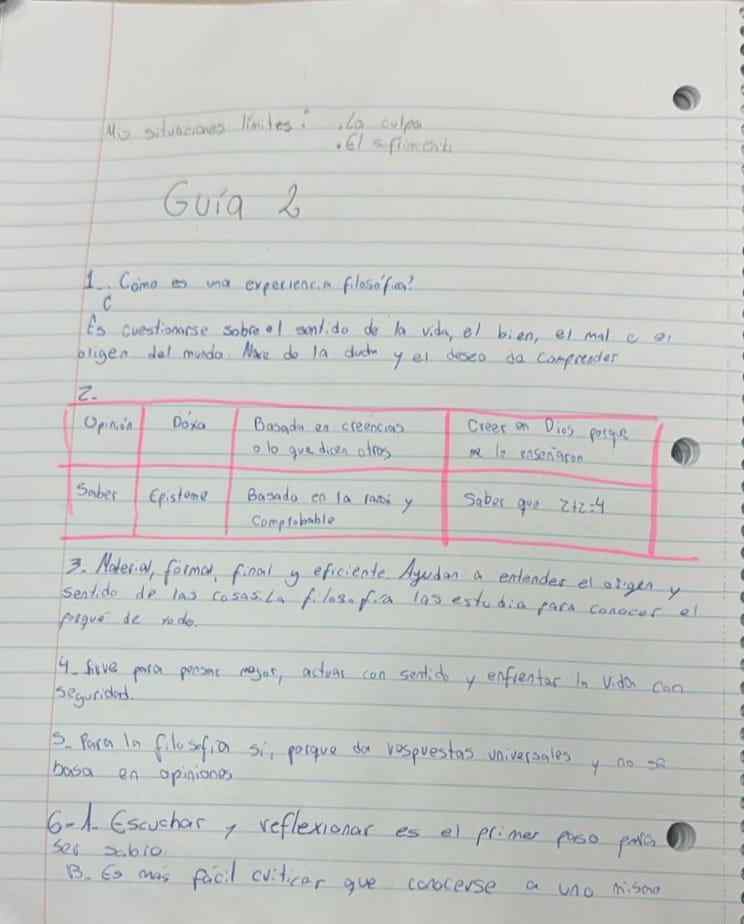 Mis situaciones límites: . La culpa
. El sufrimiento
Guía 2
1. Cómo es una experiencia filosófica?
Es cuestionarse sobre el sentido de la vida, el bien, el mal o el
origen del mundo. Nace de la duda y el deseo de comprender
2.
Opinión Dóxa Basada en creencias Creer en Dios porque
o lo que dicen otros me lo enseñaron
Saber Episteme Basado en la razón y Saber que 2+2=4
comprobable
3. Material, formal, final y eficiente Ayudan a entender el origen y
sentido de las cosas. La filosofía las estudia para conocer el
porqué de todo.
4_ Sirve para pensar mejor, actuar con sentido y enfrentar la vida con
seguridad.
5_ Para la filosofía si, porque da respuestas universales y no se
basa en opiniones
6-1. Escuchar y reflexionar es el primer paso para
ser sabio
B_ Es más fácil criticar que conocerse a uno mismo